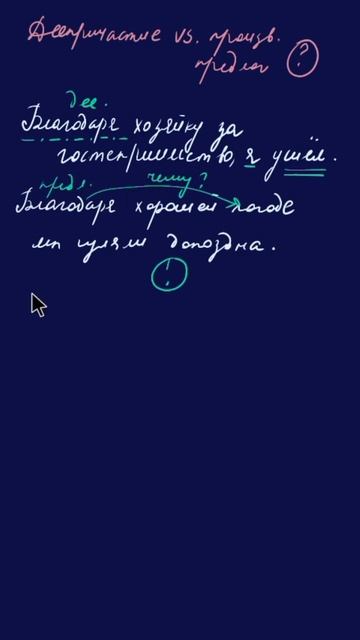 Деепричастие vs. произв.
предлог ?
дее.
Благодаря хозяйку за
гостеприимство, я ушёл.
предл. чему?
Благодаря хорошей погоде
мы гуляли допоздна.
!